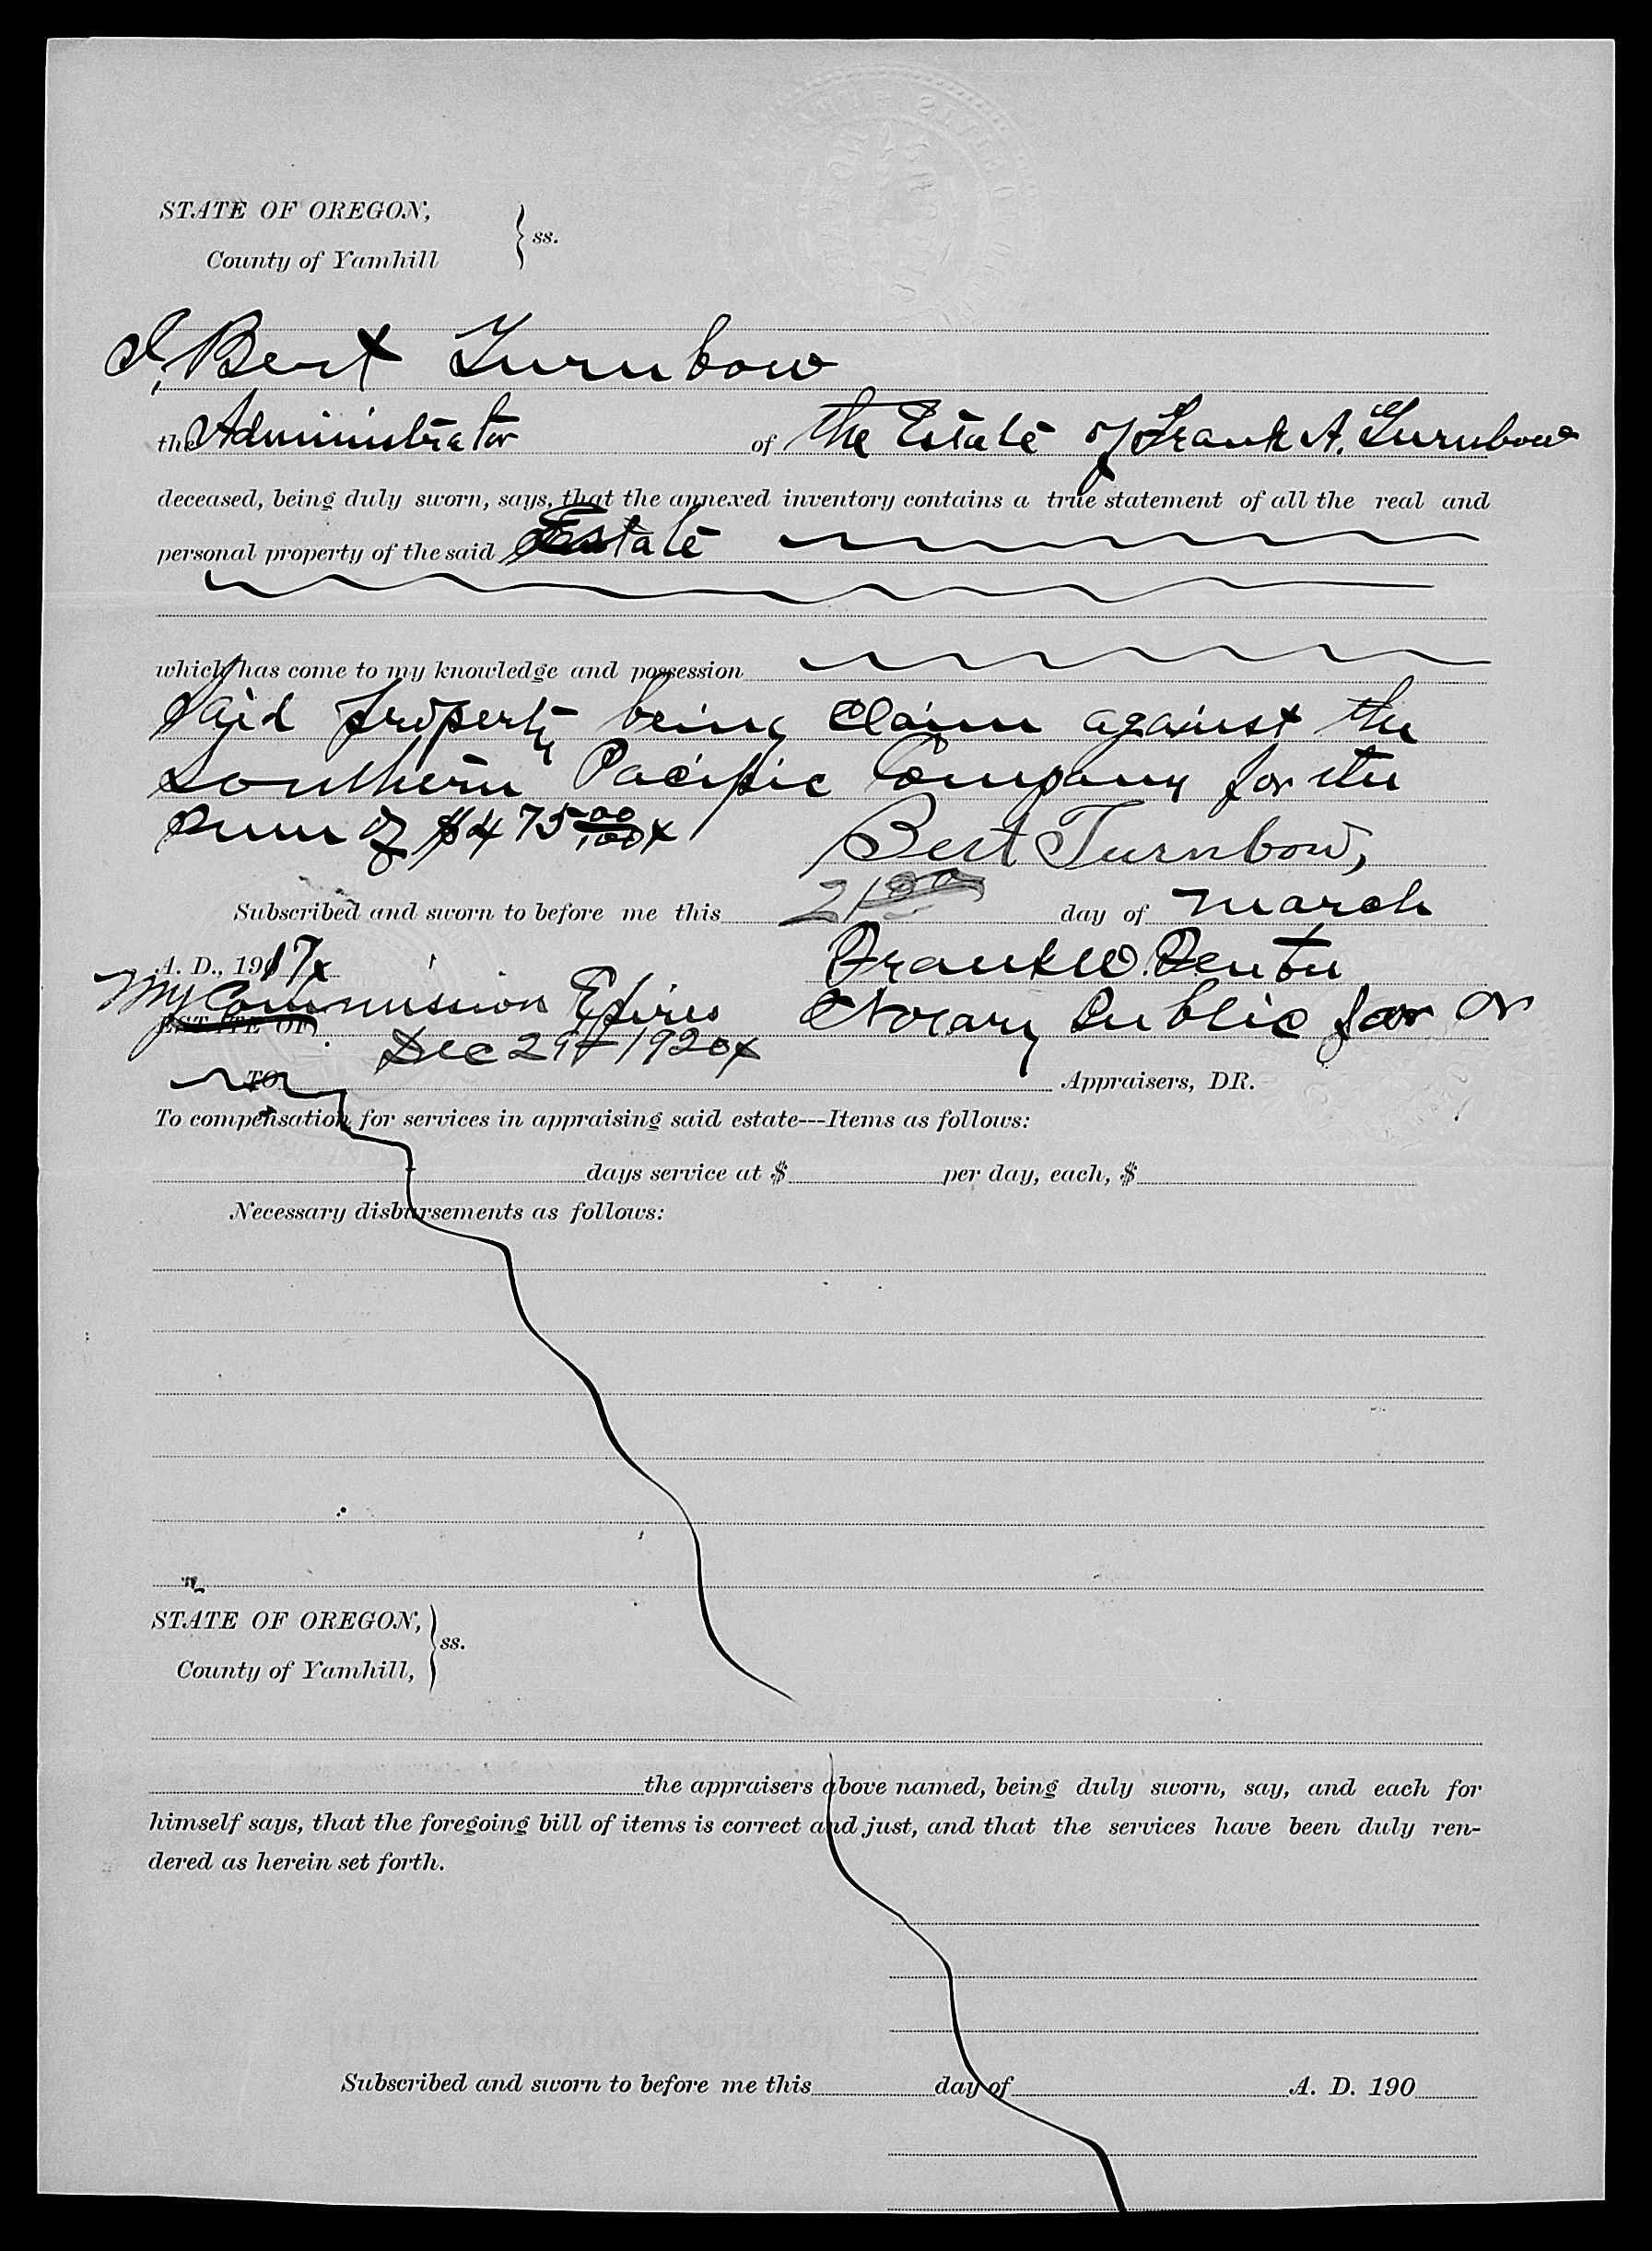 STATE OF OREGON,
County of Yamhill } ss.
I, Bert Turnbow
the Administrator of the Estate of Frank A. Turnbow
deceased, being duly sworn, says, that the annexed inventory contains a true statement of all the real and
personal property of the said Estate
which has come to my knowledge and possession
Said property being claim against the
Southern Pacific Company for the
sum of $475 00/100 x
Bert Turnbow,
Subscribed and sworn to before me this 21 day of March
A. D., 1917x
Frank W. Fenton
My Commission Expires Notary Public for Or
ESTATE OF
Dec 29th 1920x
TO Appraisers, DR.
To compensation for services in appraising said estate---Items as follows:
days service at $ per day, each, $
Necessary disbursements as follows:
STATE OF OREGON,
County of Yamhill, } ss.
the appraisers above named, being duly sworn, say, and each for
himself says, that the foregoing bill of items is correct and just, and that the services have been duly ren-
dered as herein set forth.
Subscribed and sworn to before me this day of A. D. 190